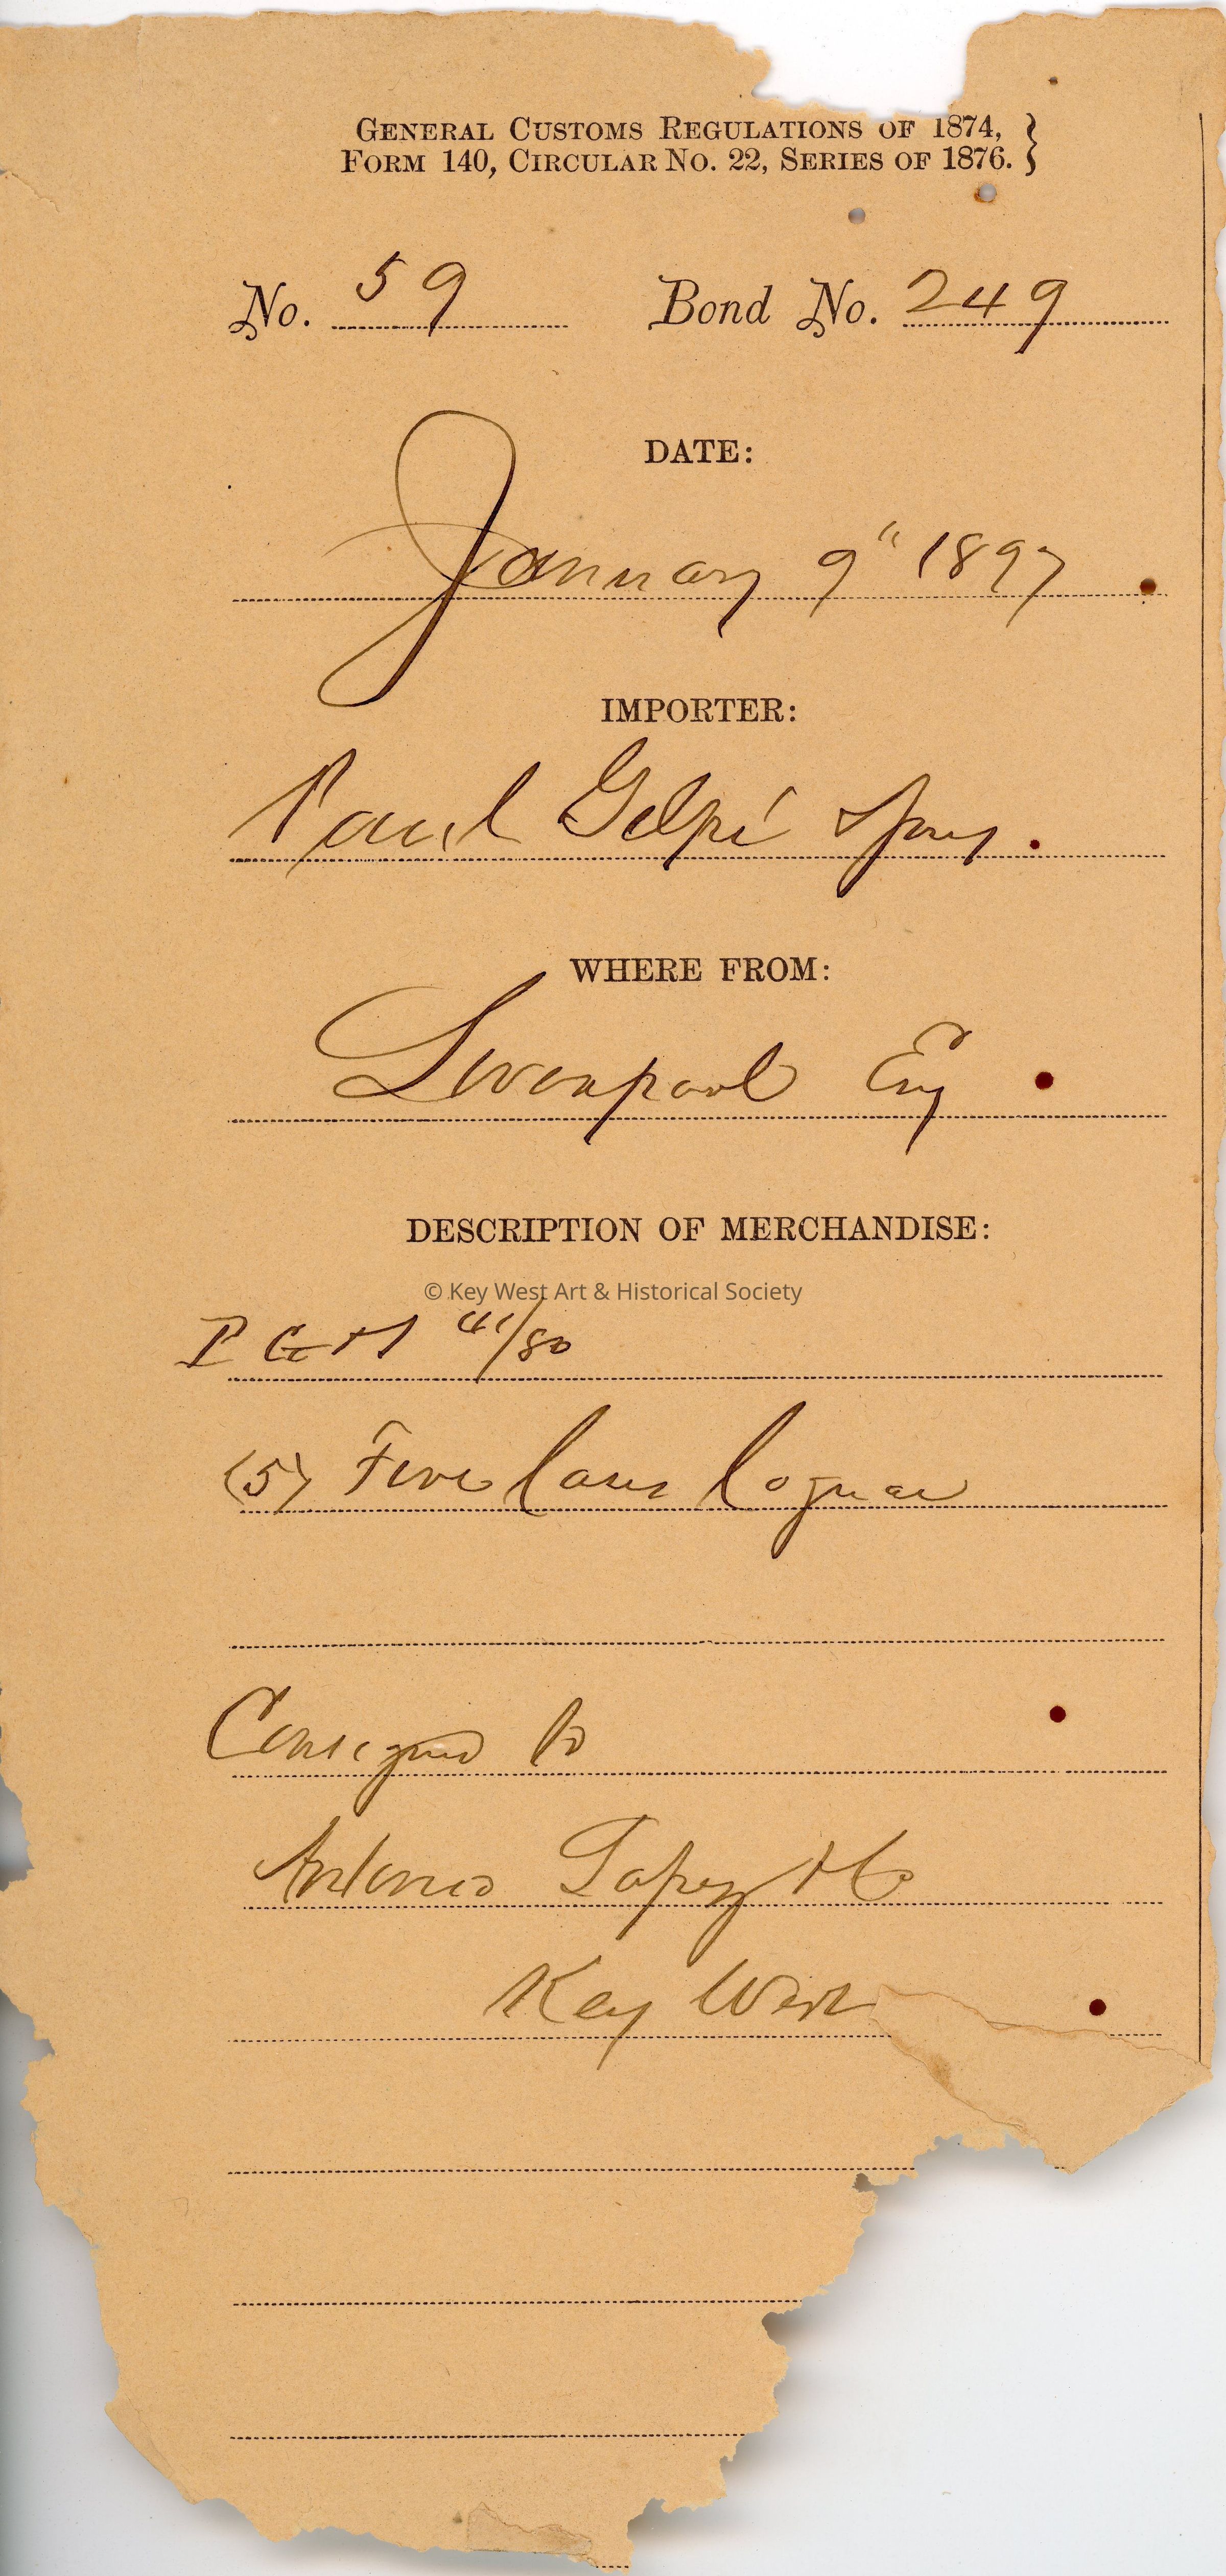 GENERAL CUSTOMS REGULATIONS OF 1874,
FORM 140, CIRCULAR NO. 22, SERIES OF 1876. }
No. 59 Bond No. 249
DATE:
January 9" 1897
IMPORTER:
Paul Gelpi & Sons
WHERE FROM:
Liverpool Eng
DESCRIPTION OF MERCHANDISE:
© Key West Art & Historical Society
P G /80
(5) Five Cases Cognac
Consigned to
Antonio Lopez & Co
Key West